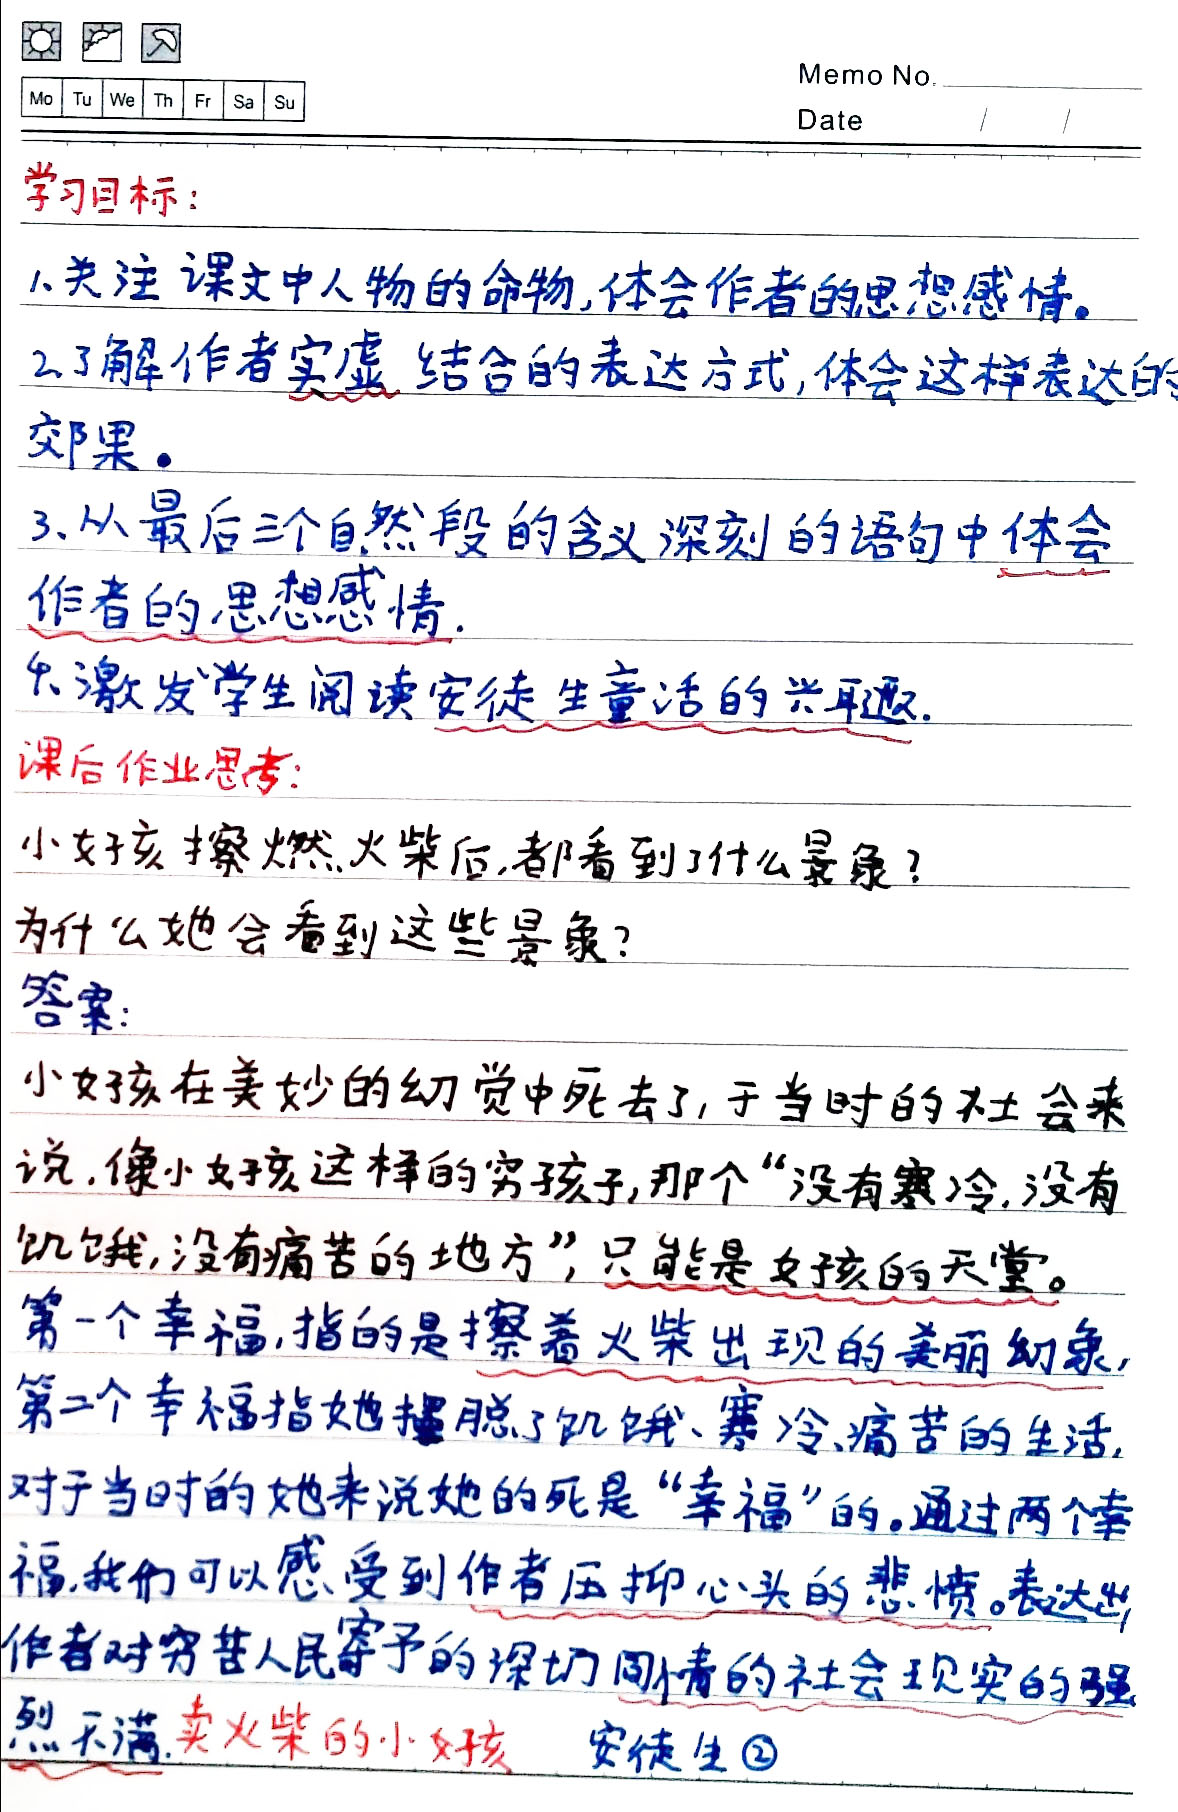 Mo Tu We Th Fr Sa Su
Memo No.
Date / /
学习目标:
1、关注课文中人物的命物,体会作者的思想感情。
2、了解作者实虚结合的表达方式,体会这样表达的
效果。
3、从最后三个自然段的含义深刻的语句中体会
作者的思想感情.
4、激发学生阅读安徒生童话的兴趣.
课后作业思考:
小女孩擦燃火柴后,都看到了什么景象?
为什么她会看到这些景象?
答案:
小女孩在美妙的幻觉中死去了,于当时的社会来
说,像小女孩这样的穷孩子,那个“没有寒冷,没有
饥饿,没有痛苦的地方”,只能是女孩的天堂。
第一个幸福,指的是擦着火柴出现的美丽幻象,
第二个幸福指她摆脱了饥饿、寒冷、痛苦的生活,
对于当时的她来说她的死是“幸福”的。通过两个幸
福,我们可以感受到作者压抑心头的悲愤。表达出
作者对穷苦人民寄予的深切同情的社会现实的强
烈不满.卖火柴的小女孩 安徒生②